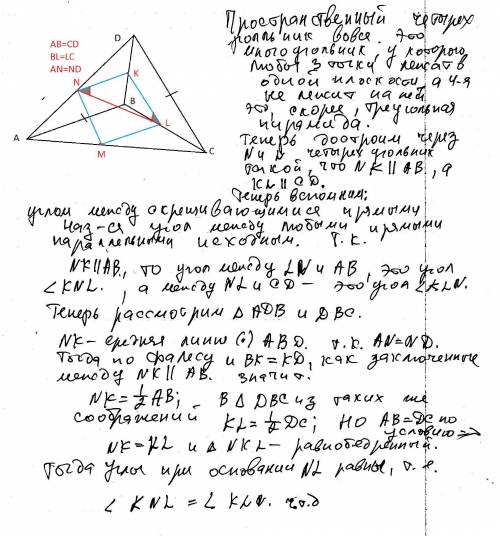 AB=CD
BL=LC
AN=ND
D
N
K
B
L
A
M
C
Пространственный четырех
угольник вовсе. Это
многоугольник, у которого
любые 3 точки лежат в
одной плоскости а 4-я
не лежит на ней
это, скорее, треугольная
пирамида.
Теперь достроим через
N и L четырехугольник
такой, что NK || AB, а
KL || CD.
Теперь вспомним:
углом между скрещивающимися прямыми
наз-ся угол между любыми прямыми
параллельными исходным. Т.к.
NK||AB, то угол между LN и AB, это угол
∠KNL, а между NL и CD – это угол ∠KLN.
Теперь рассмотрим △ADB и DBC.
NK – средняя линия ABD. т.к. AN=ND.
Тогда по фалесу и BK=KD, как заключенные
между NK || AB. значит.
NK=½AB; В △DBC из таких же
соображений KL=½DC; НО AB=DC по
условию ⇒
NK=KL и △NKL – равнобедренный.
Тогда углы при основании NL равны, т.е.
∠KNL = ∠KLN. чтд